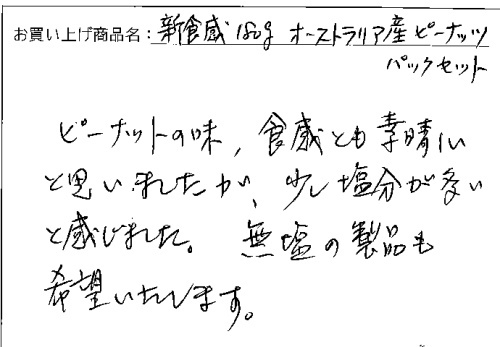 お買い上げ商品名：新食感180g オーストラリア産ピーナッツ
パックセット
ピーナットの味，食感とも素晴しい
と思いましたが、少し塩分が多い
と感じました。無塩の製品も
希望いたします。